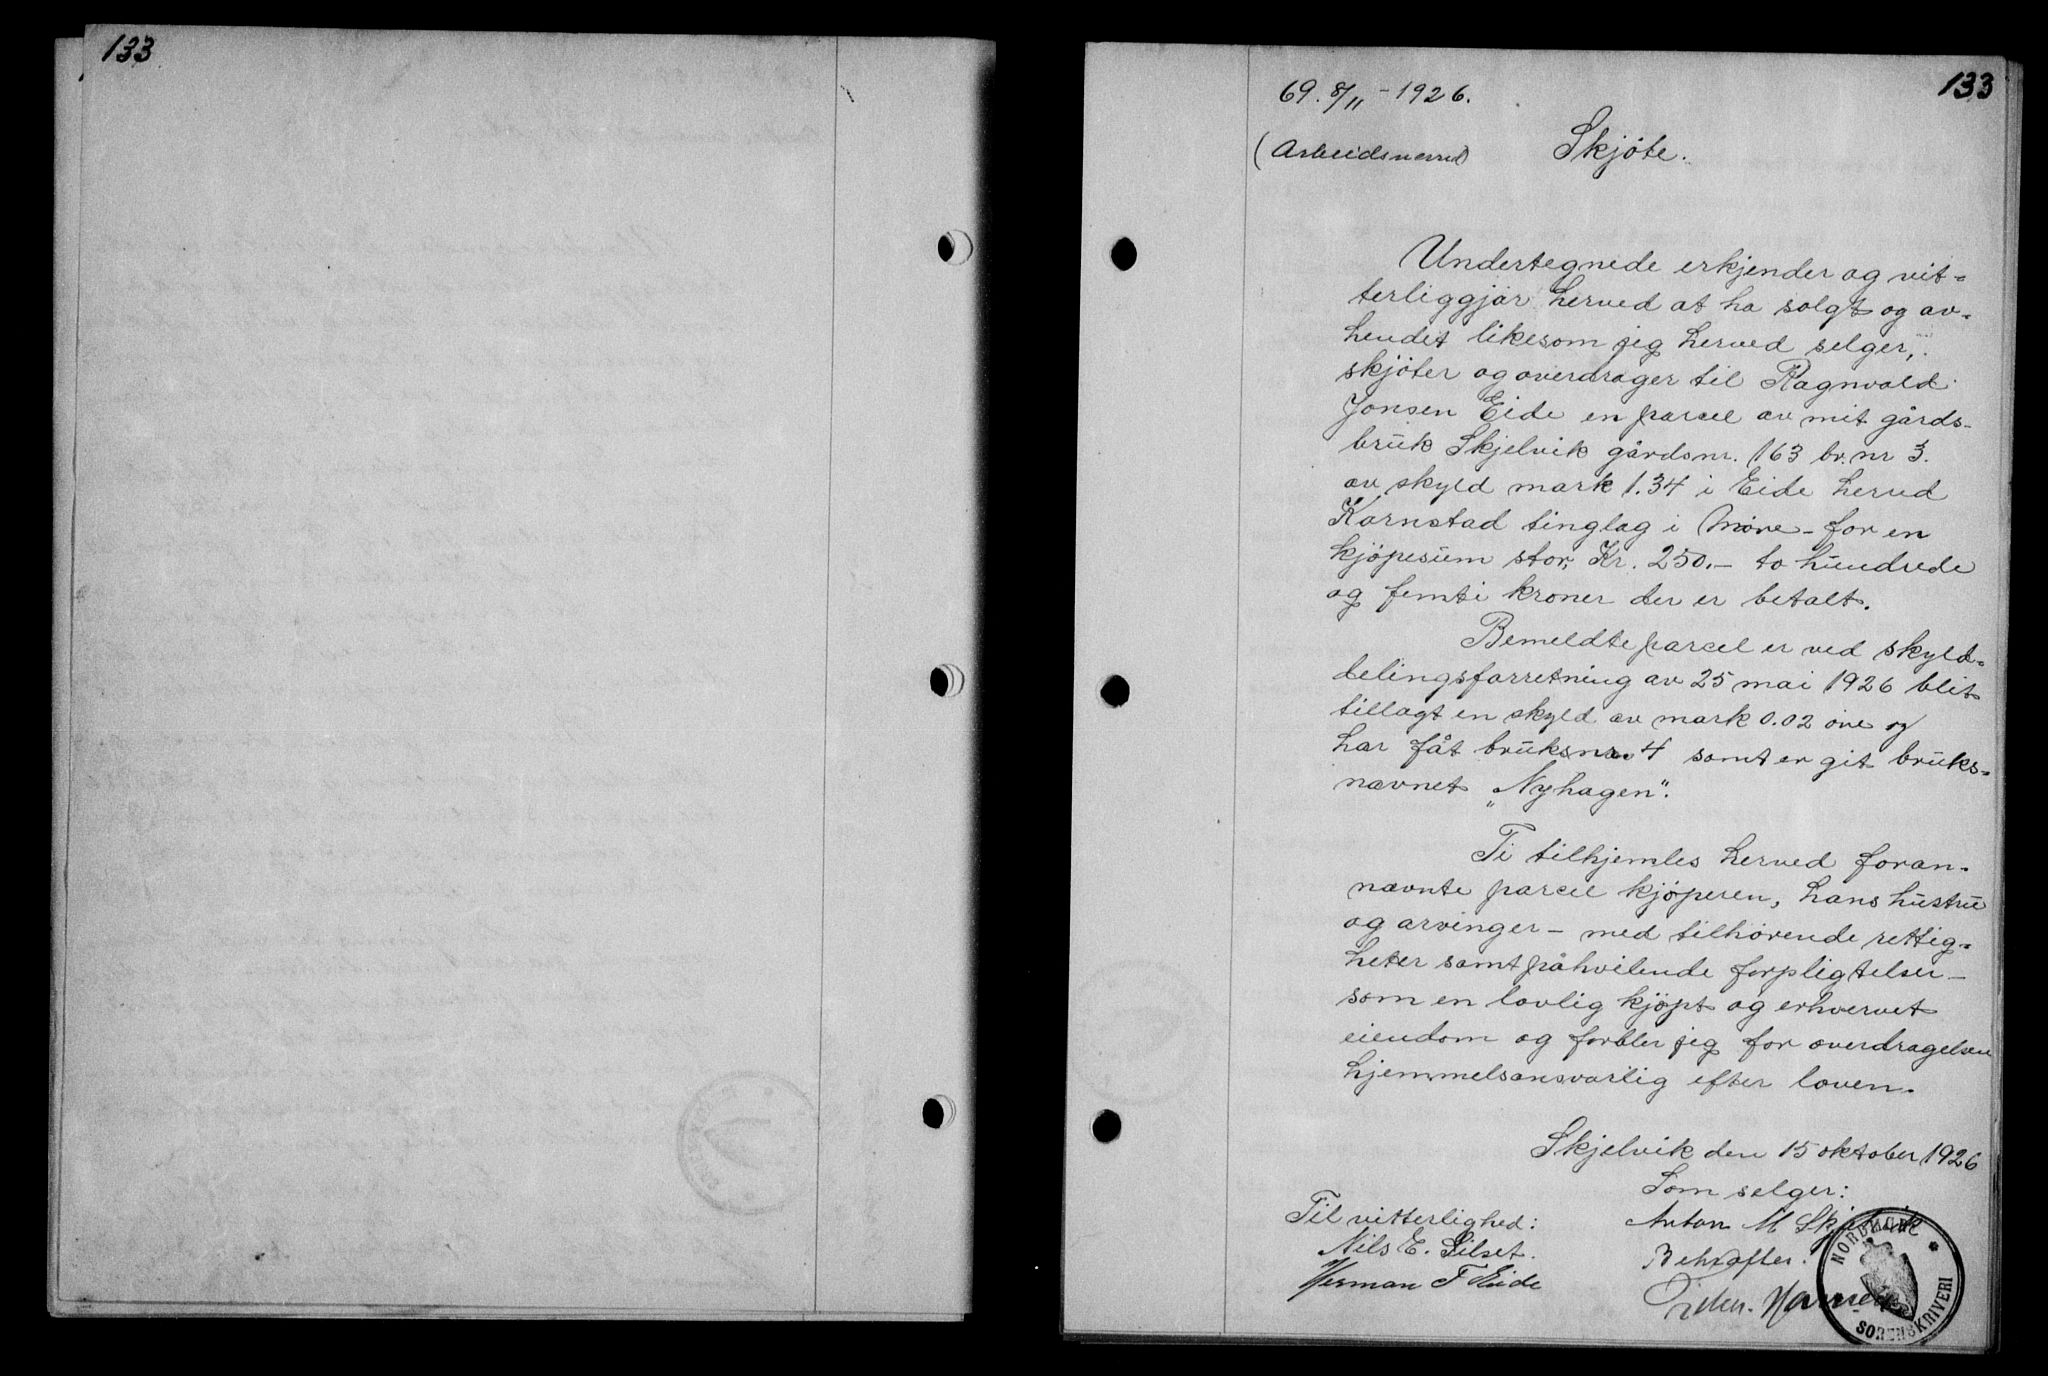 133
133
69. 8/11 - 1926.
(Arbeidsverd)
Skjöte.
Undertegnede erkjender og vit=
terliggjör herved at ha solgt og av=
hendet likesom jeg herved selger,
skjöter og overdrager til Ragnvald
Jonsen Eide en parcel av mit gårds-
bruk Skjelvik gårdsnr. 163 br. nr 3.
av skyld mark 1.34 i Eide herred
Kornstad tinglag i Möre - for en
kjöpesum stor, Kr. 250.- to hundrede
og femti kroner der er betalt.
Bemeldte parcel er ved skyld=
delingsforretning av 25 mai 1926 blit
tillagt en skyld av mark 0.02 öre og
har fåt bruksnr. 4 samt er git bruks=
navnet „Nyhagen".
Ti tilhjemles herved foran-
nævnte parcel kjöperen, hans hustru
og arvinger - med tilhörende rettig=
heter samt påhvilende forpligtelser -
som en lovlig kjöpt og erhvervet
eiendom og forbler jeg for overdragelsen
hjemmelsansvarlig efter loven.
Skjelvik den 15 oktober 1926
Som selger:
Til vitterlighed: Anton M Skjelvik
Nils E. Silset. Bekræfter.
Herman F Eide
NORDMØRE
SORENSKRIVERI